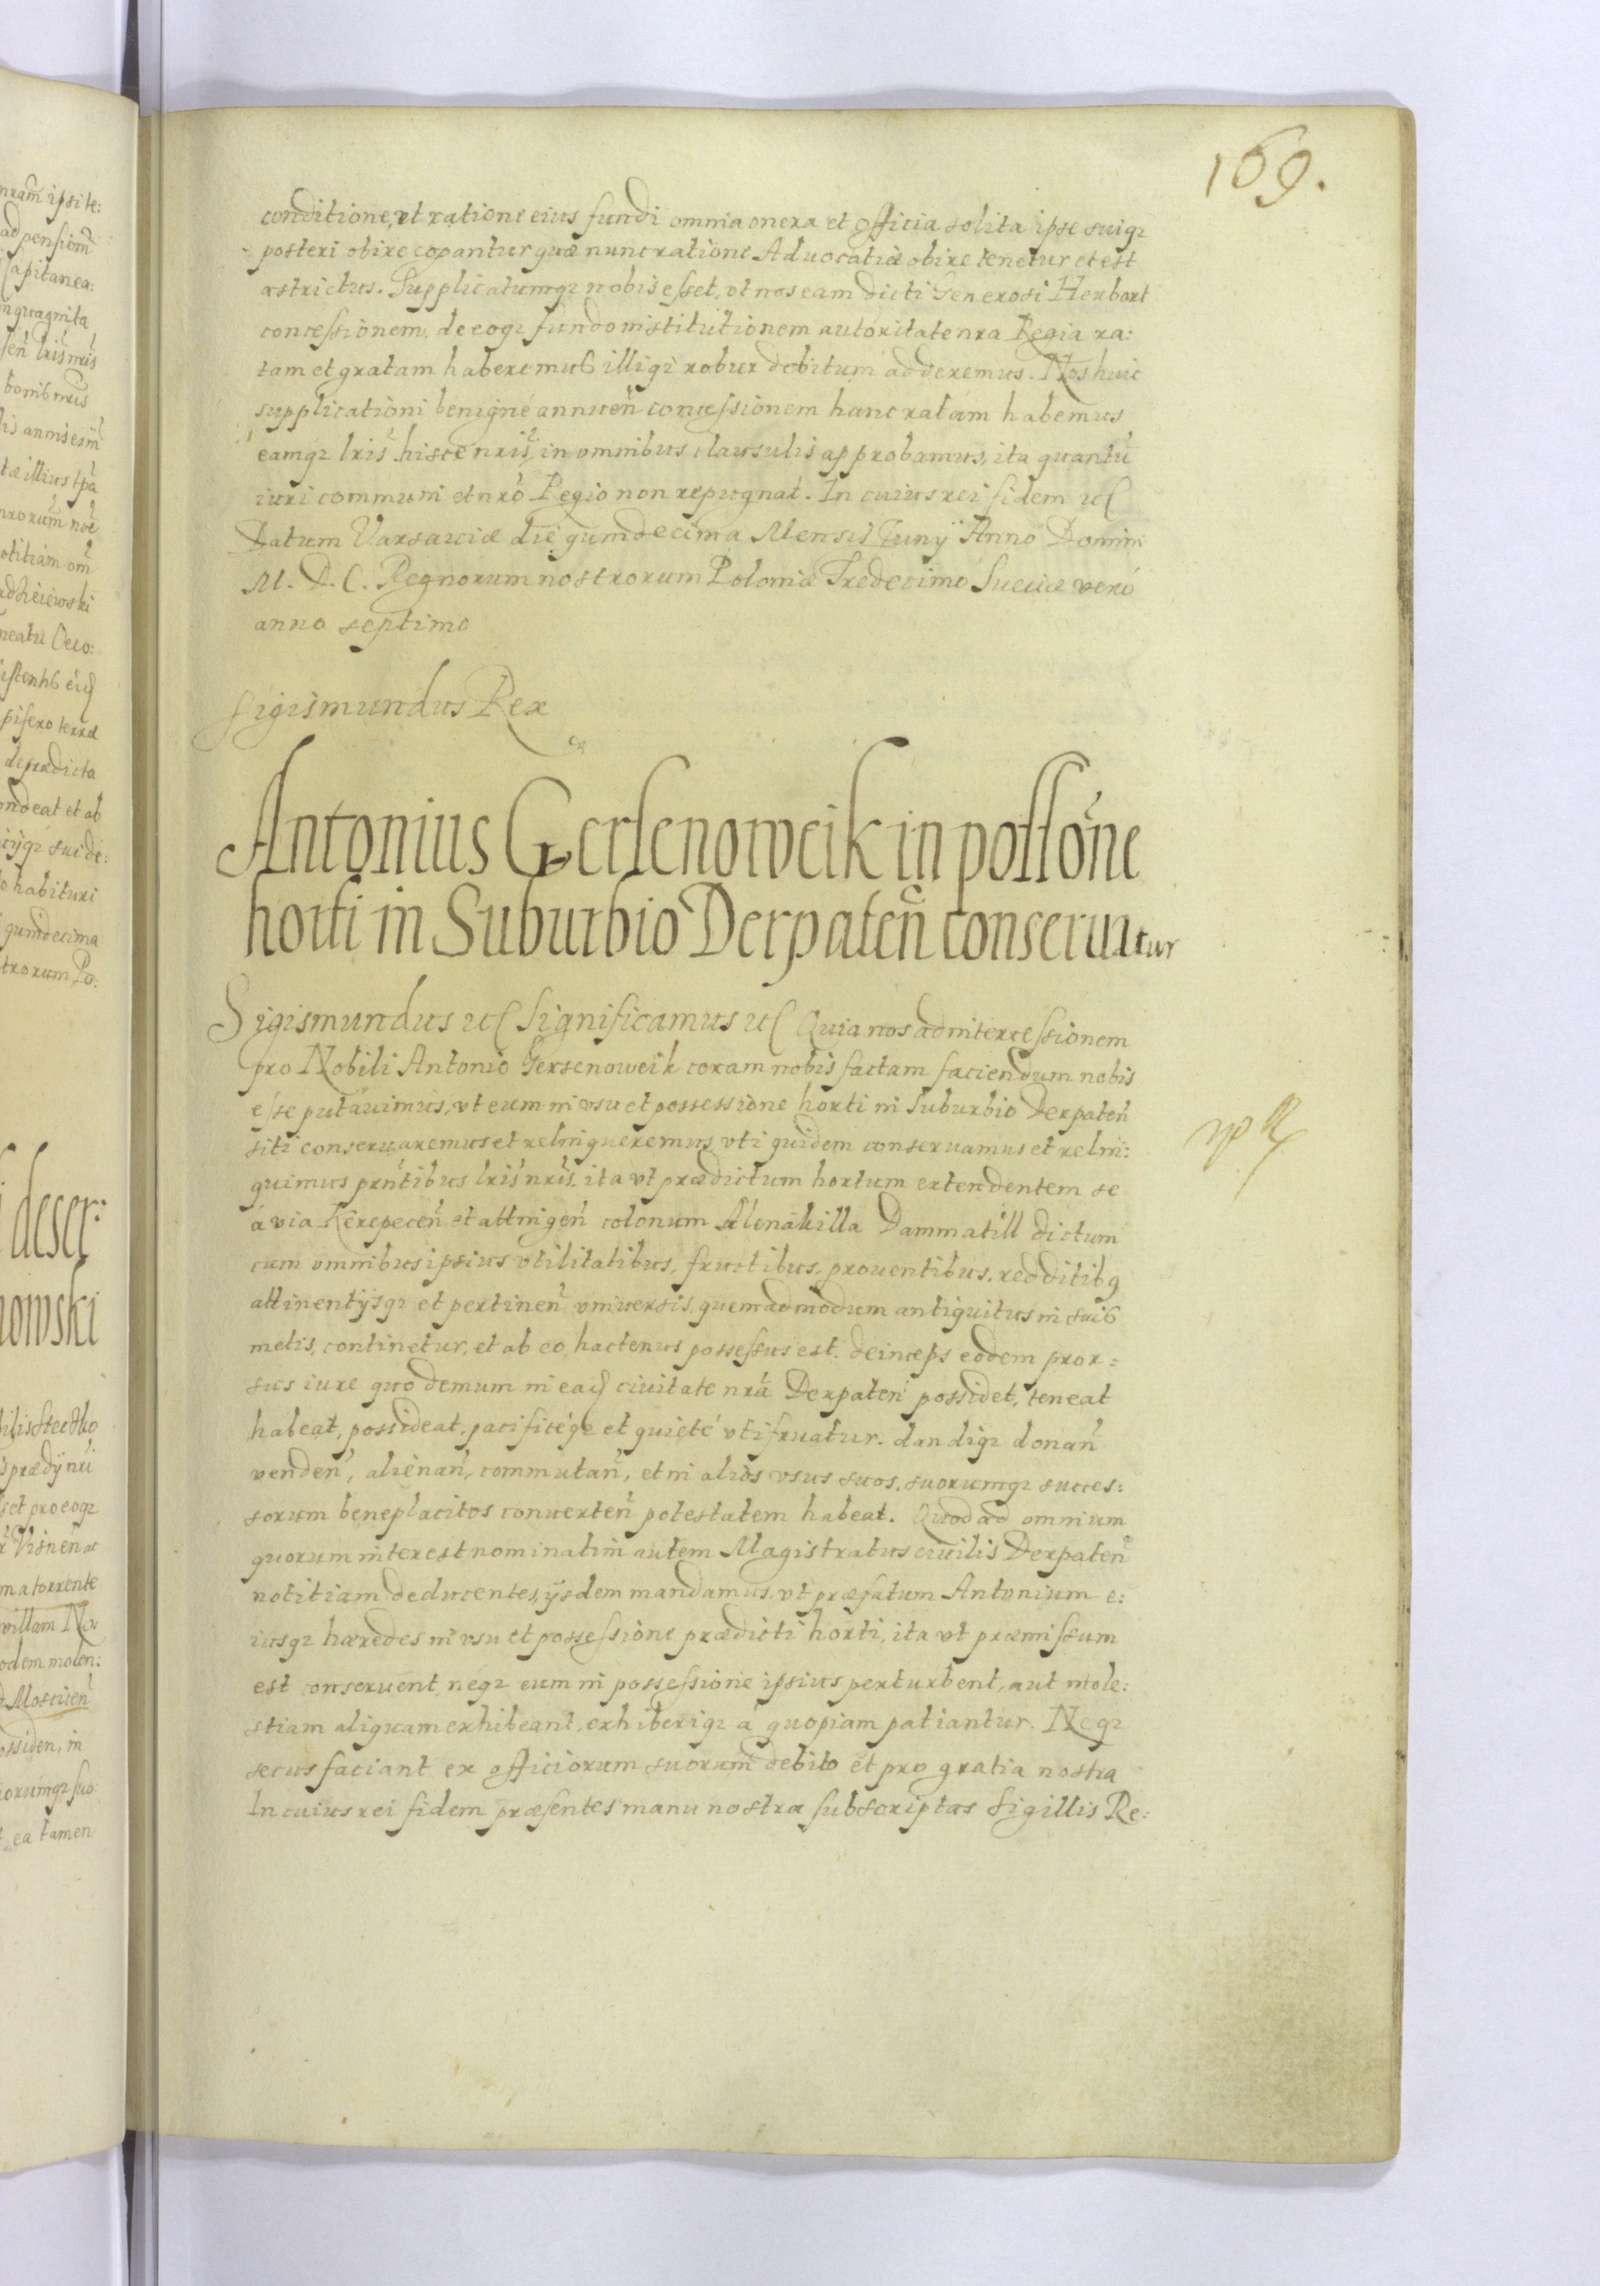 169.
conditione, vt ratione eius fundi omnia onera et officia solita ipse suiq3
posteri obire cogantur quæ nunc ratione Aduocatiæ obire tenetur et est
astrictus. Supplicatumq3 nobis esset, vt nos eam dicti Generosi Herbort
concessionem, de eoq3 fundo institutionem autoritate nra Regia ra:
tam et gratam haberemus illiq3 robur debitum adderemus. Nos huic
supplicationi benigné annuen concessionem hanc ratam habemus
eamq3 lris hisce nris, in omnibus clausulis approbamus, ita quantu
iuri communi et nro Regio non repugnat. In cuius rei fidem etc
Datum Varsauiæ die quindecima Mensis Iunij Anno Domini
M. D. C. Regnorum nostrorum Poloniæ Tredecimo Sueciæ veró
anno septimo
Sigismundus Rex
Antonius Gersenoweik in possone
horti in Suburbio Derpaten conseruatur
Sigismundus etc Significamus etc Quia nos ad intercessionem
pro Nobili Antonio Gersenoweik coram nobis factam faciendum nobis
esse putauimus, vt eum in vsu et possessione horti in Suburbio Derpaten
siti conseruaremus et relinqueremus vti quidem conseruamus et relin:
quimus prntibus lris nris, ita vt prædictum hortum extendentem se
á via Kerepecen et attingen colonum Alenakilla Dammatill dictum
cum omnibus ipsius vtilitatibus, fructibus, prouentibus, redditibus
attinentijsq3 et pertinen vniuersis, quemadmodum antiquitus in suis
metis, continetur, et ab eo, hactenus possessus est, deinceps eodem pror:
sus iure quo demum in ead ciuitate nra Derpaten possidet, teneat
habeat, possideat, pacificéq3 et quieté vtifruatur. dandiq3 donan
venden, alienan, commutan, et in alios vsus suos, suorumq3 succes:
sorum beneplacitos conuerten potestatem habeat. Quod ad omnium
quorum interest nominatim autem Magistratus ciuilis Derpaten
notitiam deducentes, ijsdem mandamus, vt præfatum Antonium e:
iusq3 hæredes in vsu et possessione prædicti horti, ita vt præmissum
est conseruent, neq3 eum in possessione ipsius perturbent, aut mole:
stiam aliquam exhibeant, exhiberiq3 a quopiam patiantur. Neq3
secus faciant ex officiorum suorum debito et pro gratia nostra
In cuius rei fidem præsentes manu nostra subscriptas Sigillis Re: